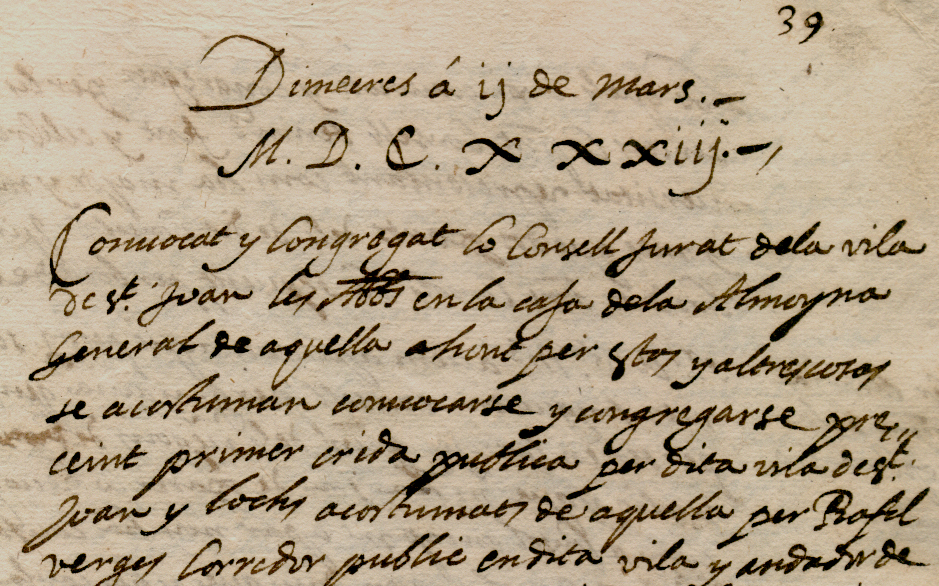 39.
Dimecres á ij de Mars.
M. D. C. X X X iij.
Convocat y Congregat lo Consell Jurat dela vila
de st. Joan les Abbs en la casa dela Almoyna
General de aquella ahont per estas y altres cosas
se acostuman convocarse y congregarse pre„
ceint primer crida publica per dita vila de st.
Joan y lochs acostumats de aquella per Rafel
verges Corredor public en dita vila y andador de